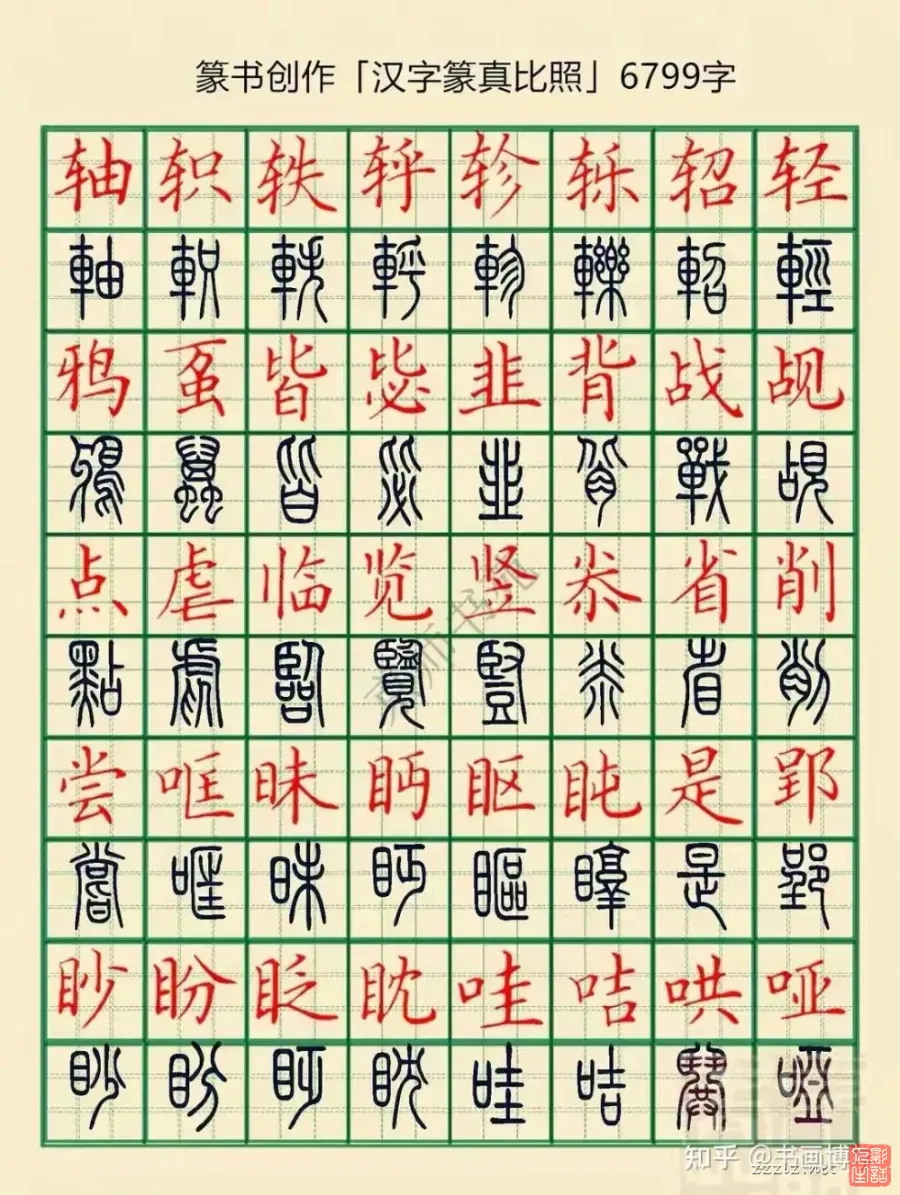 篆书创作「汉字篆真比照」6799字
轴 轵 轶 轷 轸 轹 轺 轻
軸 軹 軼 軤 軫 轢 軺 輕
鸦 虿 皆 毖 韭 背 战 觇
鴉 蠆 皆 毖 韭 背 戰 覘
点 虐 临 览 竖 尜 省 削
點 虐 臨 覽 豎 省 削
尝 哐 昧 眄 眍 盹 是 郢
嘗 哐 昧 眄 瞘 是 郢
眇 盼 眨 眈 哇 咭 哄 哑
眇 盼 眈 哇 咭 鬨 啞
知乎 @书画博
zzziz.net